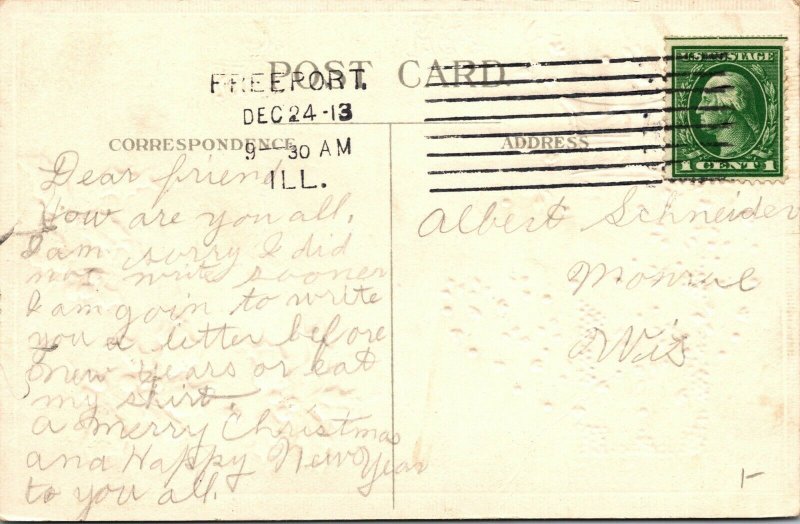 POST CARD
FREEPORT.
DEC 24-13
9-30 AM
ILL.
U.S. POSTAGE
1 CENT 1
CORRESPONDENCE
ADDRESS
Dear friend
How are you all.
I am sorry I did
not write sooner
I am goin to write
you a letter before
new years or eat
my shirt.
a Merry Christmas
and Happy New Year
to you all.
Albert Schneider
Monroe
Wis
1-